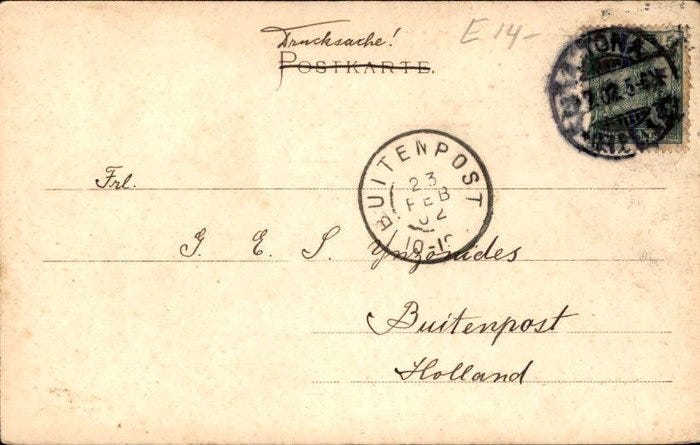 Drucksache!
E 14-
POSTKARTE.
ALTONA
2.02.5-6N
BUITENPOST
23
FEB
02
10-1
Frl.
G. E. S. Ynzonides
Buitenpost
Holland